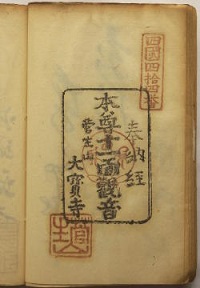 四國四拾四番
奉納經
本尊十一面觀音
菅生山
大寳寺